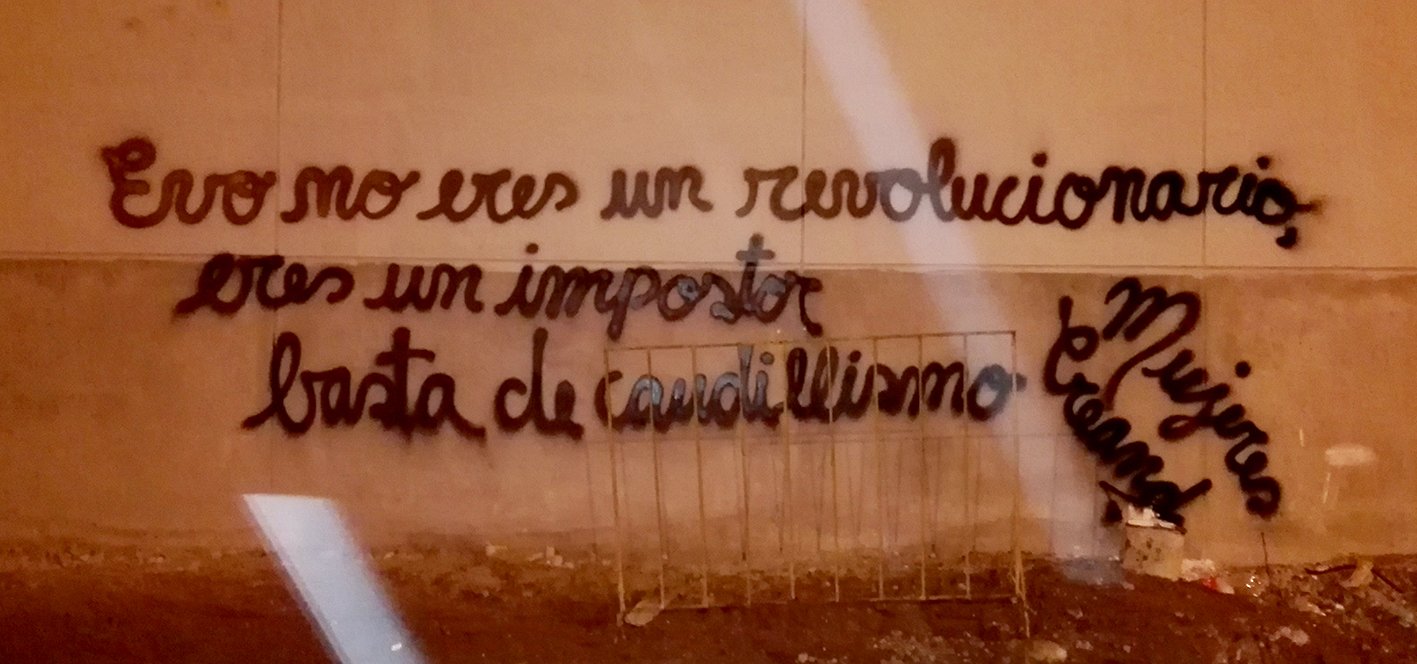 Evo no eres un revolucionario,
eres un impostor
basta de caudillismo
Mujeres
Creando